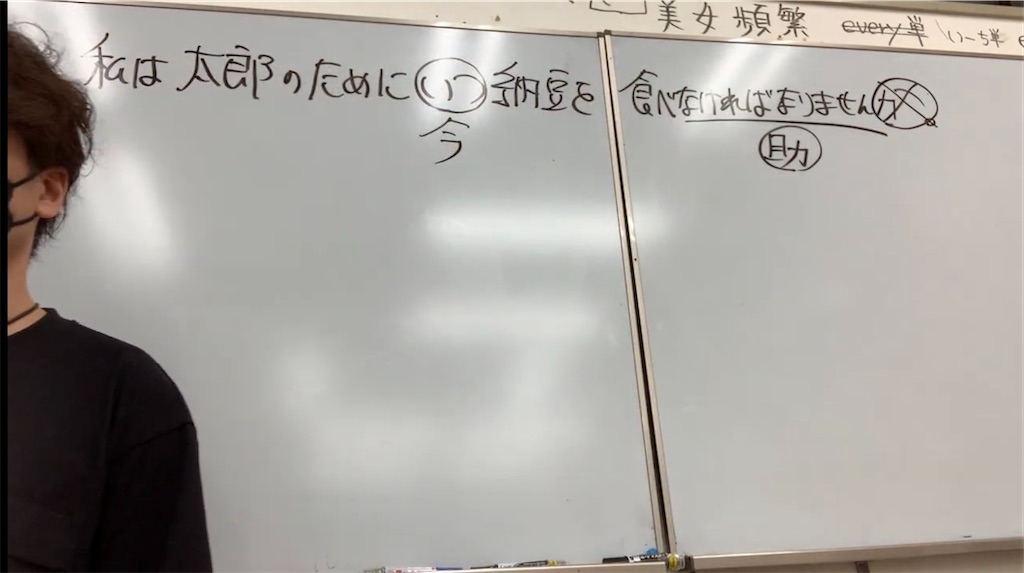 美女頻繁 every単 い〜ち単
私は太郎のために いつ 納豆を 食べなければなりませんか。
今
助